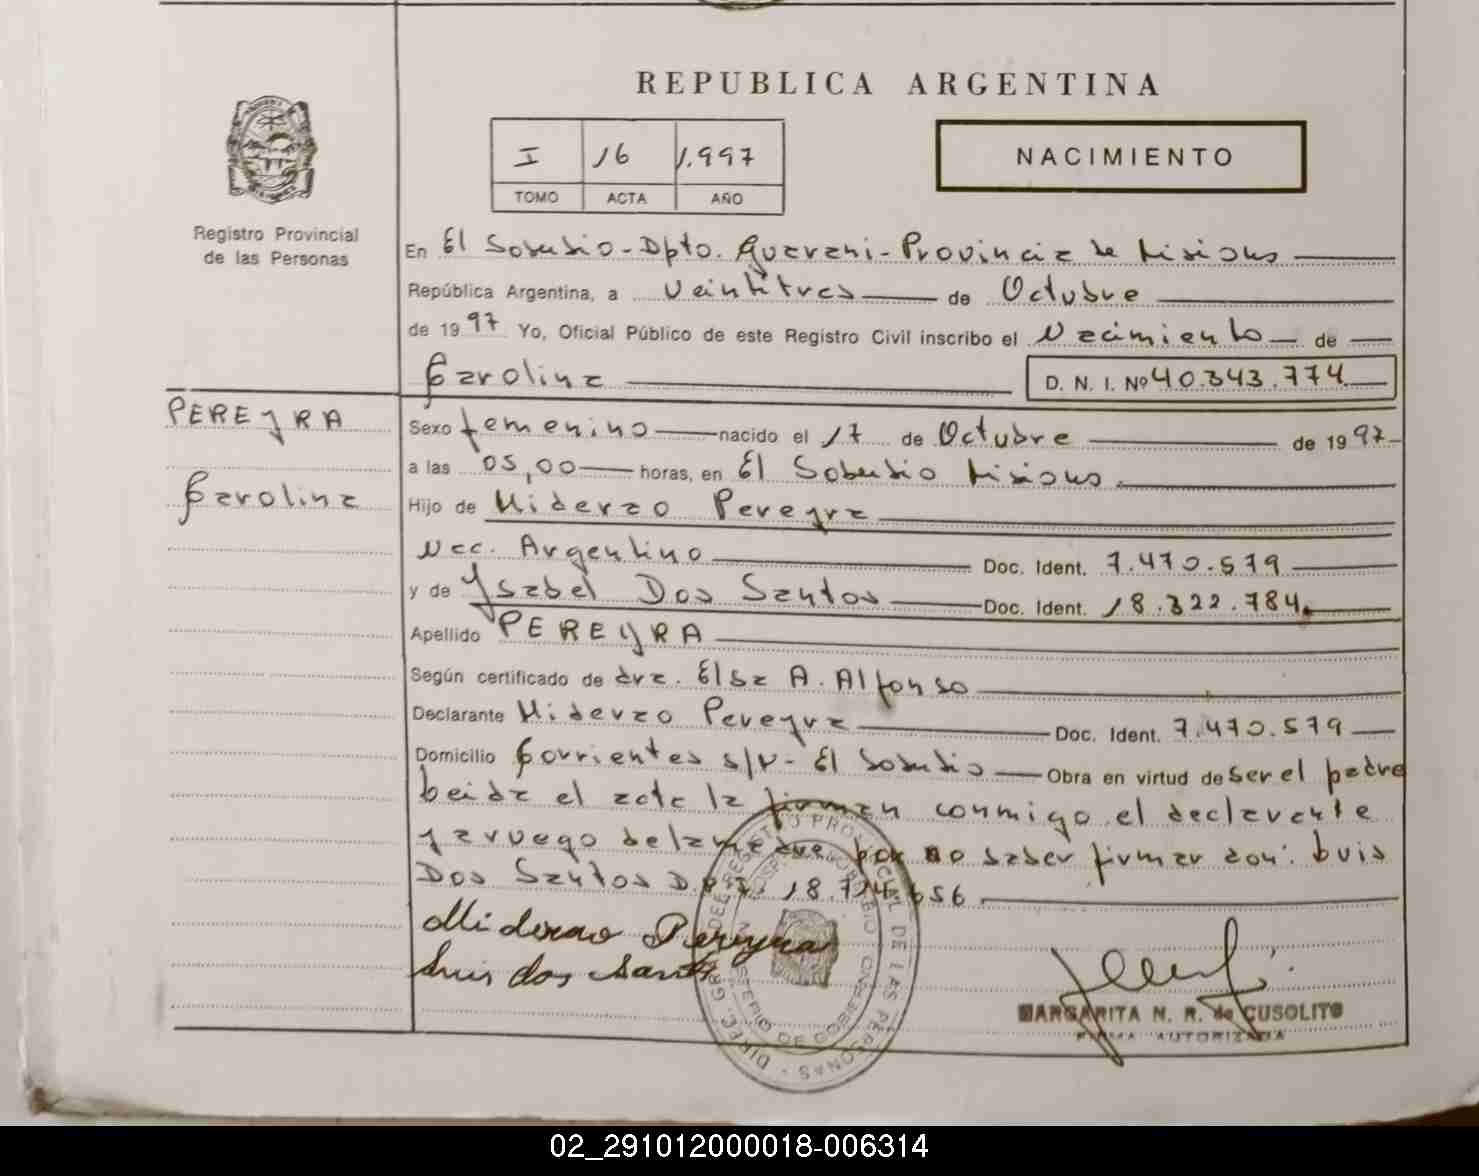 REPUBLICA ARGENTINA
I 16 1.997
TOMO ACTA AÑO
NACIMIENTO
Registro Provincial
de las Personas
En El Soberbio - Dpto. Guarani - Provincia de Misiones
República Argentina, a veintitres de Octubre
de 1997 Yo, Oficial Público de este Registro Civil inscribo el Nacimiento de
Carolina
D. N. I. Nº 40.343.774
PEREYRA
Carolina
Sexo femenino nacido el 17 de Octubre de 1997
a las 05,00 horas, en El Soberbio Misiones
Hijo de Miderao Pereyra
Nac. Argentino Doc. Ident. 7.470.579
y de Ysabel Dos Santos Doc. Ident. 18.322.784
Apellido PEREYRA
Según certificado de dra. Elsa A. Alfonso
Declarante Miderao Pereyra Doc. Ident. 7.470.579
Domicilio Corrientes s/N - El Soberbio Obra en virtud de ser el padre
Leida el acta la firman conmigo el declarante
y a ruego de la madre por no saber firmar don: Luis
Dos Santos D.N.I. 18.714.656
Miderao Pereyra
Luis dos Santos
DIREC. GRAL. DEL REGISTRO PROVINCIAL DE LAS PERSONAS
MINISTERIO DE GOBIERNO
MARGARITA N. R. de CUSOLITO
FIRMA AUTORIZADA
02_291012000018-006314